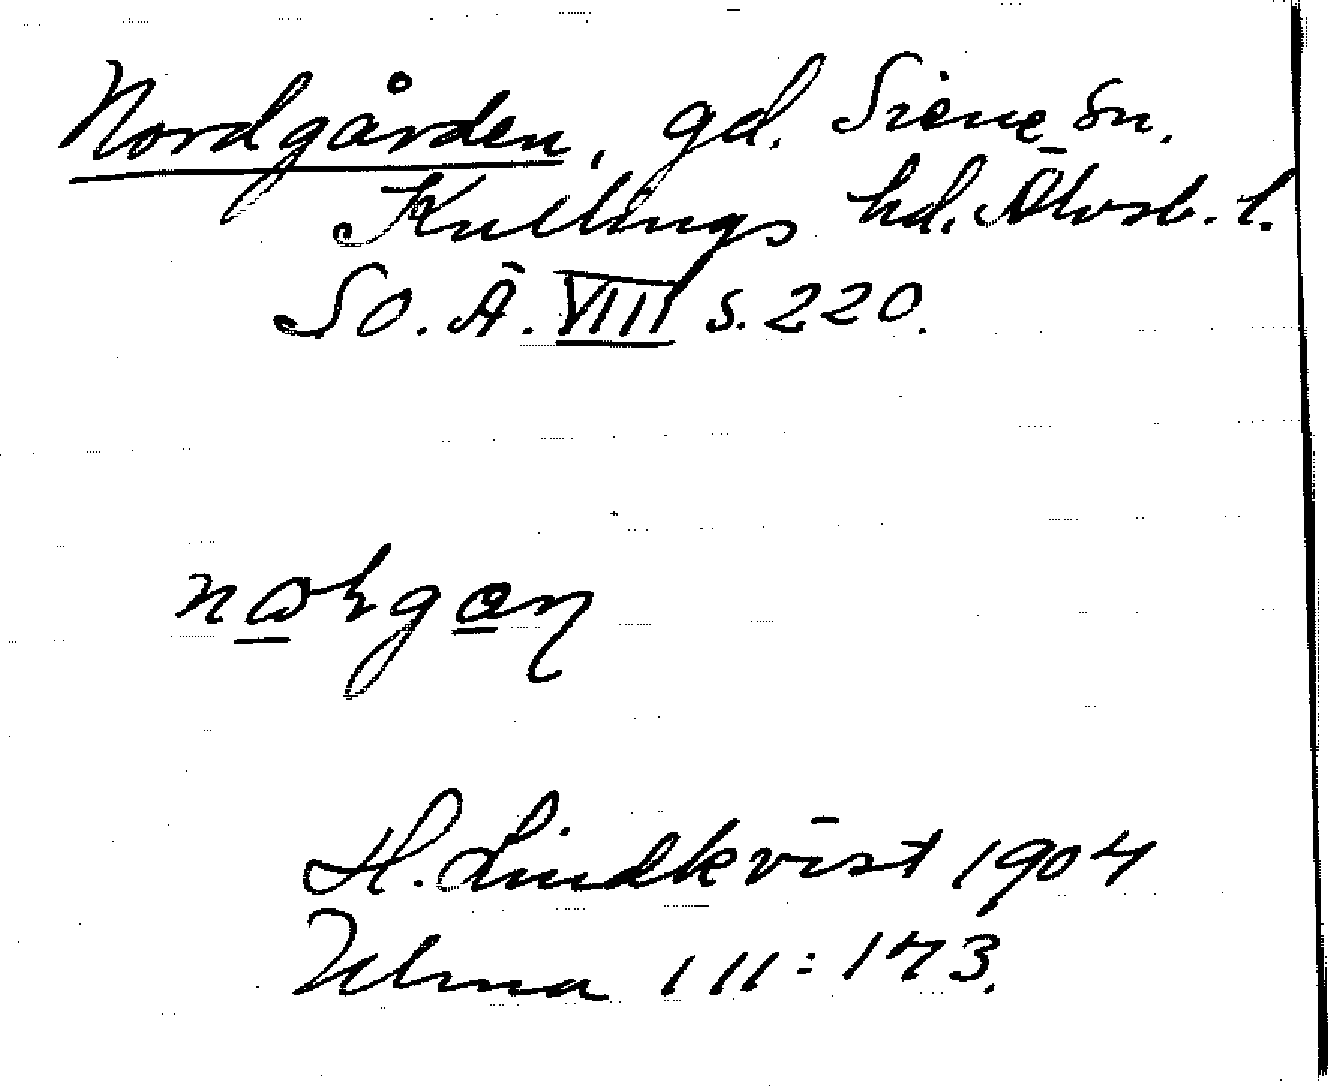 Nordgården, gd. Siene sn.
Kullings hd. Älvsb. l.
SO. Ä. VIII s. 220.
H. Lindkvist 1904
Ulma 111:173.